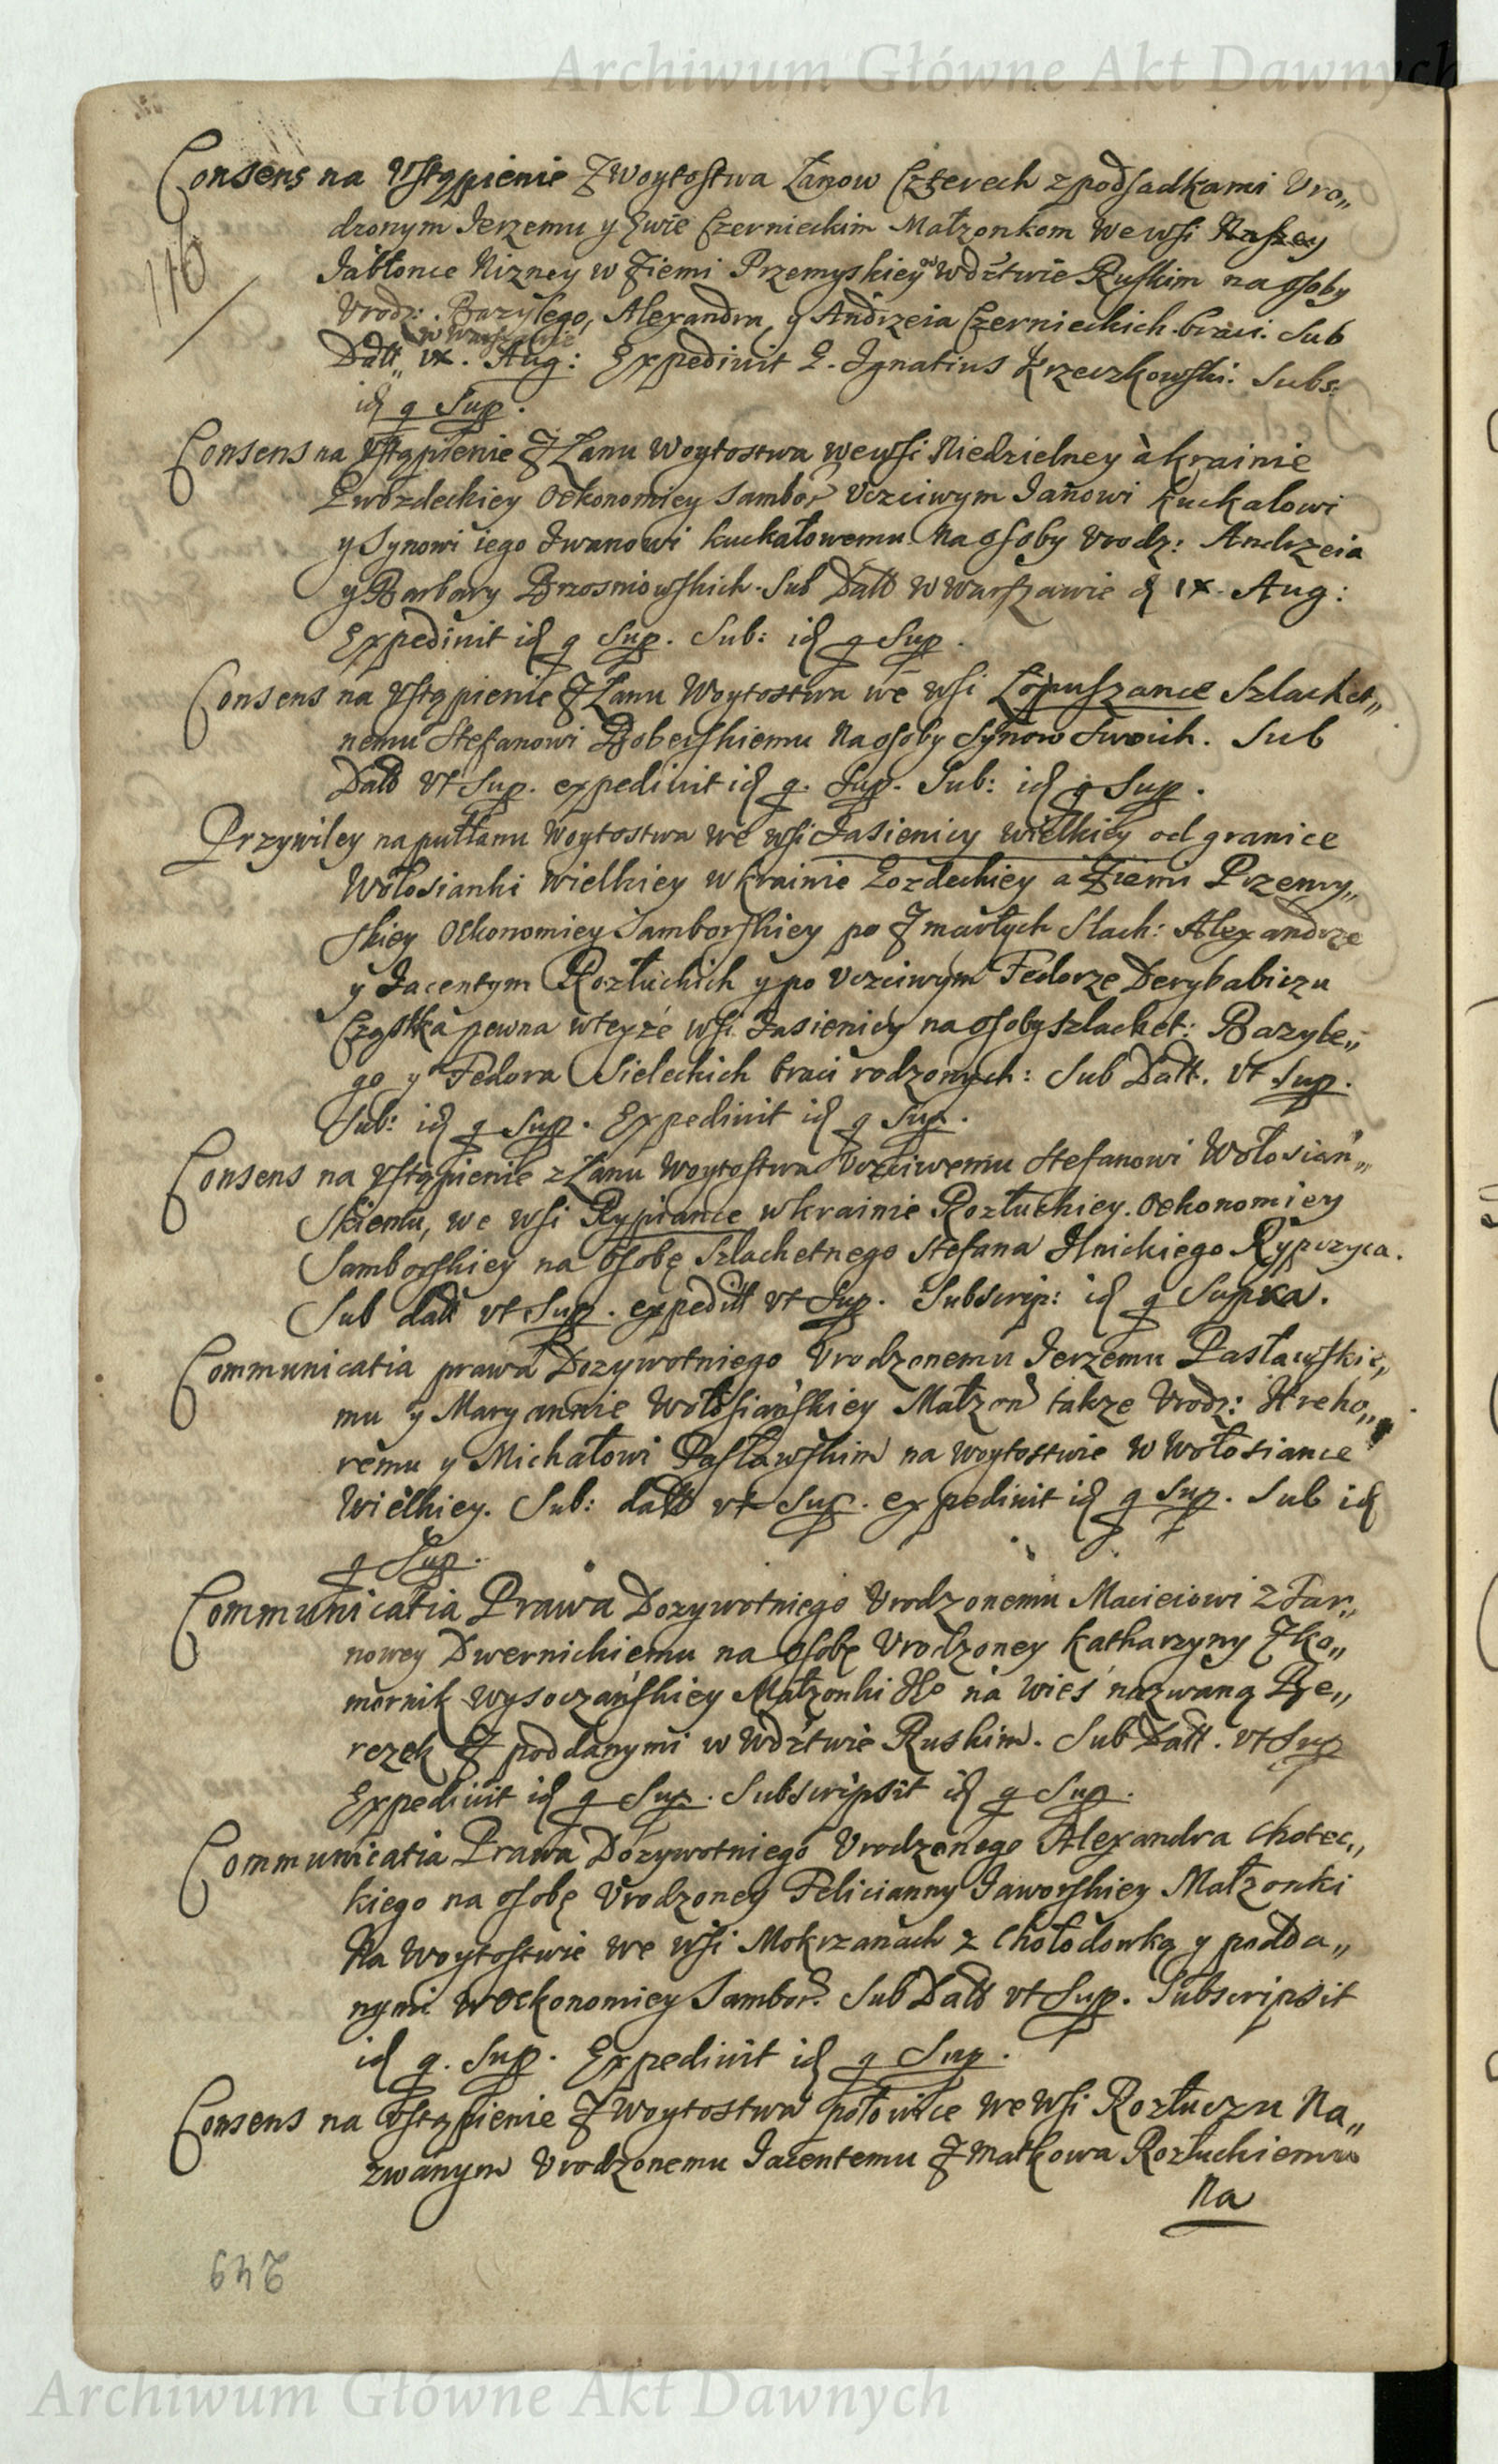 Archiwum Główne Akt Dawnych
Consens na Vstąpienie Z Woytostwa Łanow Czterech z podsadkami Vro„
dzonym Jerzemu y Ewie Czernieckim Małzonkom We wsi Naszey
Jabłonce Nizney w Ziemi Przemyskiey a Wdztwie Ruskim na osoby
Vrodz: Bazylego, Alexandra, y Andrzeia Czernieckich braci. Sub
w Warszawie
Datt„ IX. Aug: Expedivit G. Ignatius Krzeczkowski. Subs:
id q Sup.
116
Consens na Vstąpienie Z Łanu Woytostwa we wsi Niedzielney à krainie
Gwozdeckiey Oekonomiey Sambor Vczciwym Janowi Kuckalowi
y Synowi iego Iwanowi Kuckałowemu. Na osoby Vrodz: Andrzeia
y Barbary Brzosniowskich. Sub Datt w Warszawie d IX. Aug:
Expedivit id q Sup. Sub: id q Sup.
Consens na Vstąpienie Z Łanu Woytostwa we wsi Łopuszance Szlachet„
nemu Stefanowi Boberskiemu Na osoby Synow Swoich. Sub
Datt Vt Sup. expedivit id q. Sup. Sub: id q Sup.
Przywiley na puł łanu Woytostwa we wsi Jasienicy wielkiey od granice
Wołosianki Wielkiey w krainie Gozdeckiey a Ziemi Przemy„
skiey Oekonomiey Samborskiey po Zmarłych Slach: Alexandrze
y Jacentym Rozłuckich y po Vczciwym Fedorze Derybabiczu
Cząstka pewna wteyże wsi Jasienicy na osoby szlachet: Bazyle„
go y Fedora Sieleckich braci rodzonych: Sub Datt. Vt Sup.
Sub: id q Sup. Expedivit id q Sup.
Consens na Vstąpienie z Łanu Woytostwa Vczciwemu Stefanowi Wołosiań„
skiemu, we wsi Rypiance w krainie Rozłuckiey. Oekonomiey
Samborskiey na osobę Szlachetnego Stefana Ilnickiego Rypczyca.
Sub datt vt Sup. expeditt vt Sup. Subscrip: id q Supra.
Communicatia prawa Dozywotniego Vrodzonemu Jerzemu Pasławskie„
mu y Maryannie Wołosiańskiey Małzon takze Vrodz: Hreho„
remu y Michałowi Pasławskim na woytostwie w Wołosiance
Wielkiey. Sub: datt vt Sup. expedivit id q Sup. Sub id
q Sup.
Communicatia Prawa Dozywotniego Vrodzonemu Macieiowi z Tar„
nowey Dwernickiemu na osobę Vrodzoney Katharzyny Z ko„
mornik Wysoczańskiey Małzonki Jego na Wieś nazwaną Be„
rezek Z poddanymi w Wdztwie Ruskim. Sub Datt. vt Sup
Expedivit id q Sup. Subscripsit id q Sup.
Communicatia Prawa Dozywotniego Vrodzonego Alexandra Chotec„
kiego na osobę Vrodzoney Felicianny Jaworskiey Małzonki
Na Woytostwie We Wsi Mokrzanach z Chołodowką y podda„
nymi w Oekonomiey Sambor. Sub Datt vt Sup. Subscripsit
id q. Sup. Expedivit id q Sup.
Consens na Vstąpienie Z Woytostwa połowice We Wsi Rozłuczu Na„
zwanym Vrodzonemu Jacentemu Z Małkowa Rozłuckiemu
Na
249
Archiwum Główne Akt Dawnych